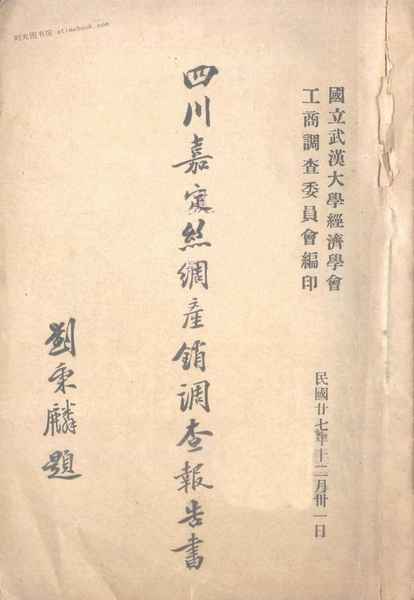 國立武漢大學經濟學會
工商調查委員會編印
民國廿七年十二月卅一日
四川嘉定絲綢產銷調查報告書
劉秉麟題
时光图书馆 atimebook.com